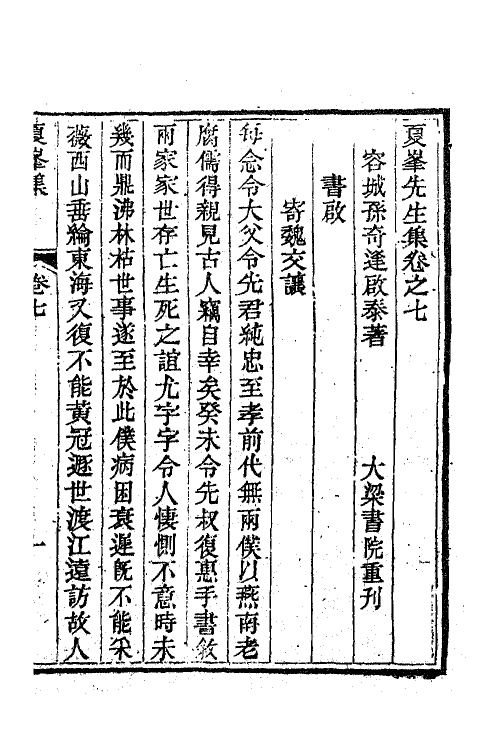 夏峯先生集卷之七
容城孫奇逢啟泰著　大梁書院重刊
書啟
寄魏交讓
每念令大父令先君純忠至孝前代無兩僕以燕南老
腐儒得親見古人竊自幸矣癸未令先叔復惠手書敘
兩家家世存亡生死之誼尤字字令人悽惻不意時未
幾而鼎沸林枯世事遂至於此僕病困衰遲旣不能采
薇西山垂綸東海又復不能黃冠遯世渡江遠訪故人
夏峯集　卷七　一